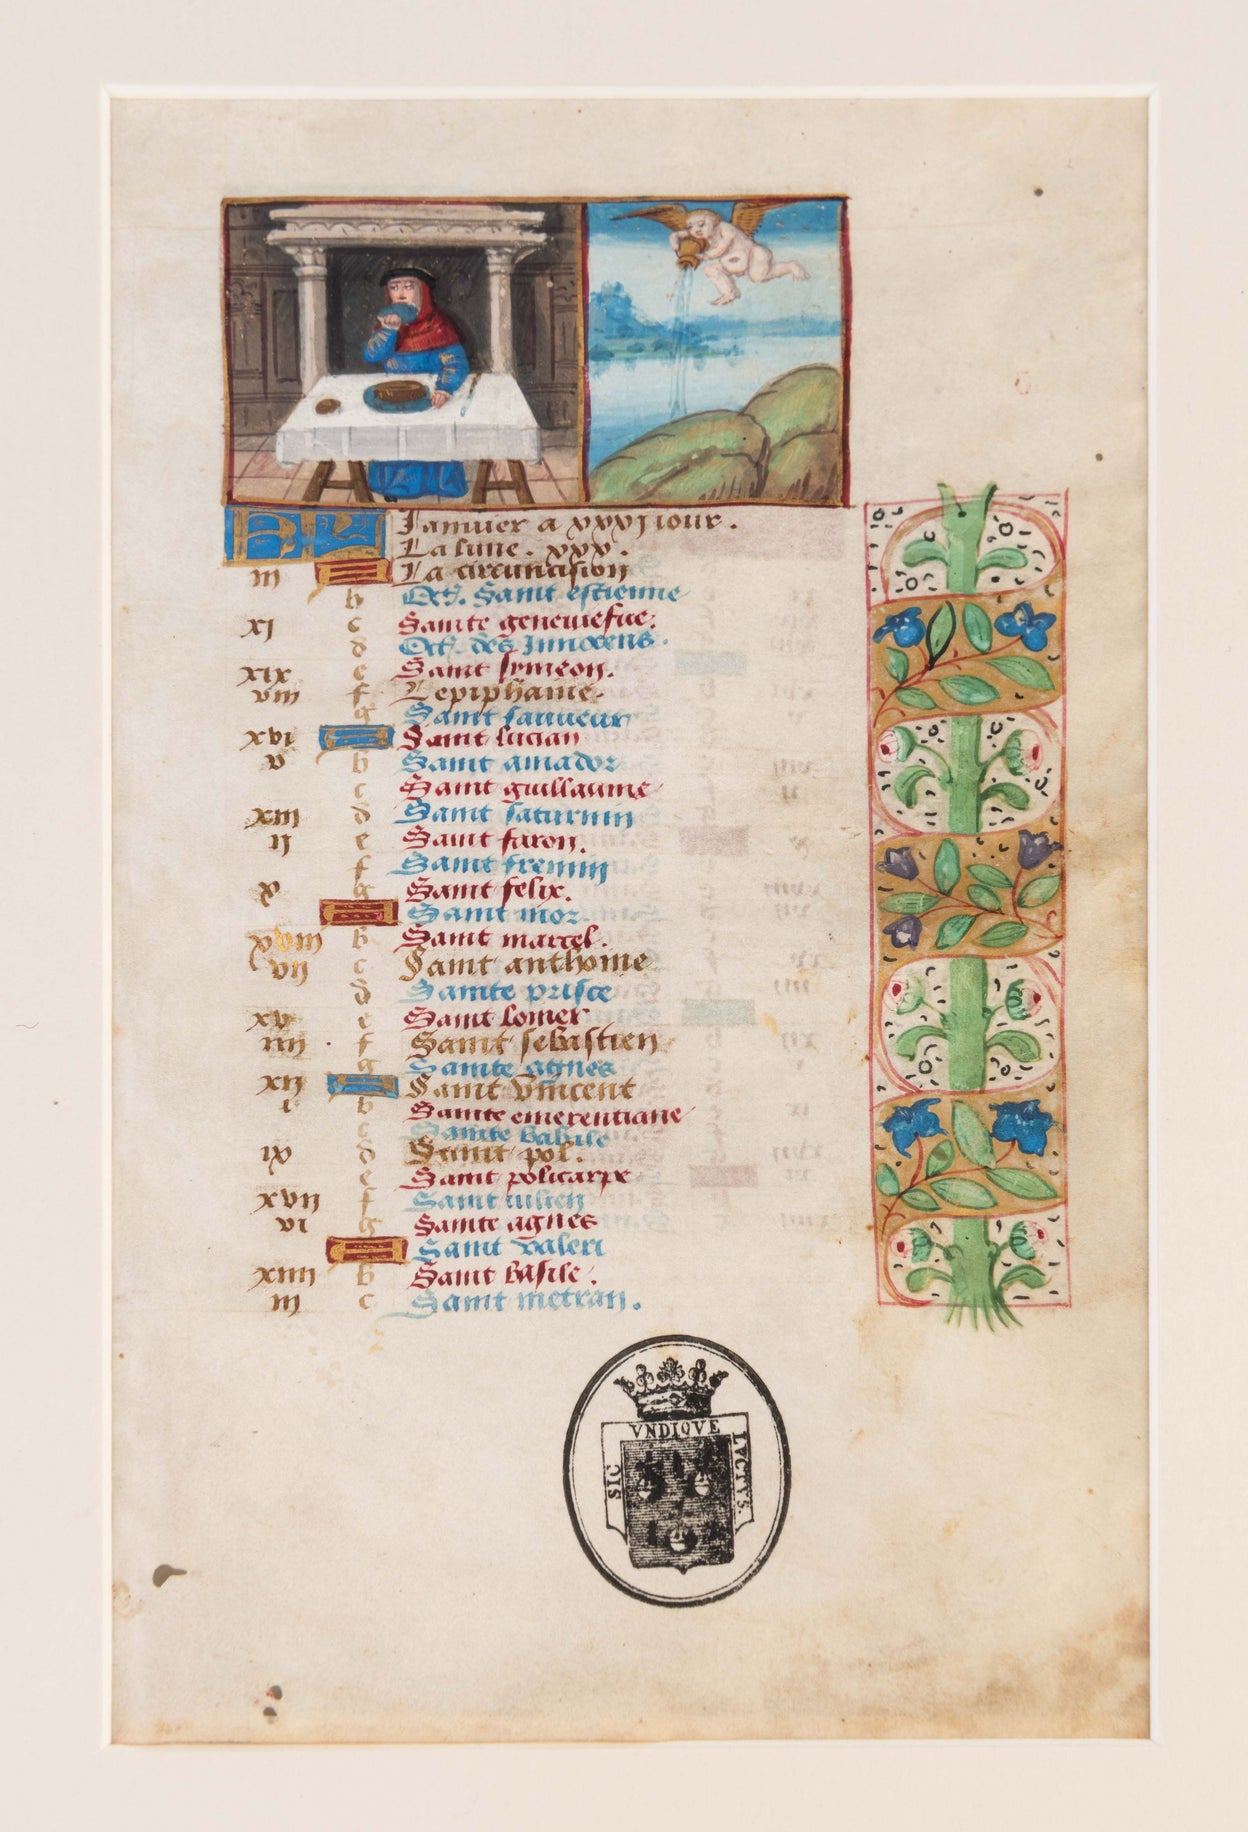 KL Januier a xxxj iour.
La lune. xxx.
iii A La circuncision
b Oct. Saint estienne
xi c Sainte geneuiefue.
d Oct. des Innocens.
xix e Saint symeon.
viii f Lepiphanie.
g Saint sauueur
xvi A Saint lucian
v b Saint amador
c Saint guillaume
xiii d Saint saturnin
ii e Saint faron.
f Saint fremin
x g Saint felix.
A Saint mor
xviii b Saint marcel.
vii c Saint anthoine
d Sainte prisce
xv e Saint lomer
iiii f Saint sebastien
g Sainte agnes
xii A Saint vincent
i b Sainte emerentiane
c Sainte babile
ix d Saint pol.
e Saint policarpe
xvii f Saint iulien
vi g Sainte agnes
A Saint valeri
xiiii b Saint basile.
iii c Saint metran.
SIC VNDIQVE LVCTVS.